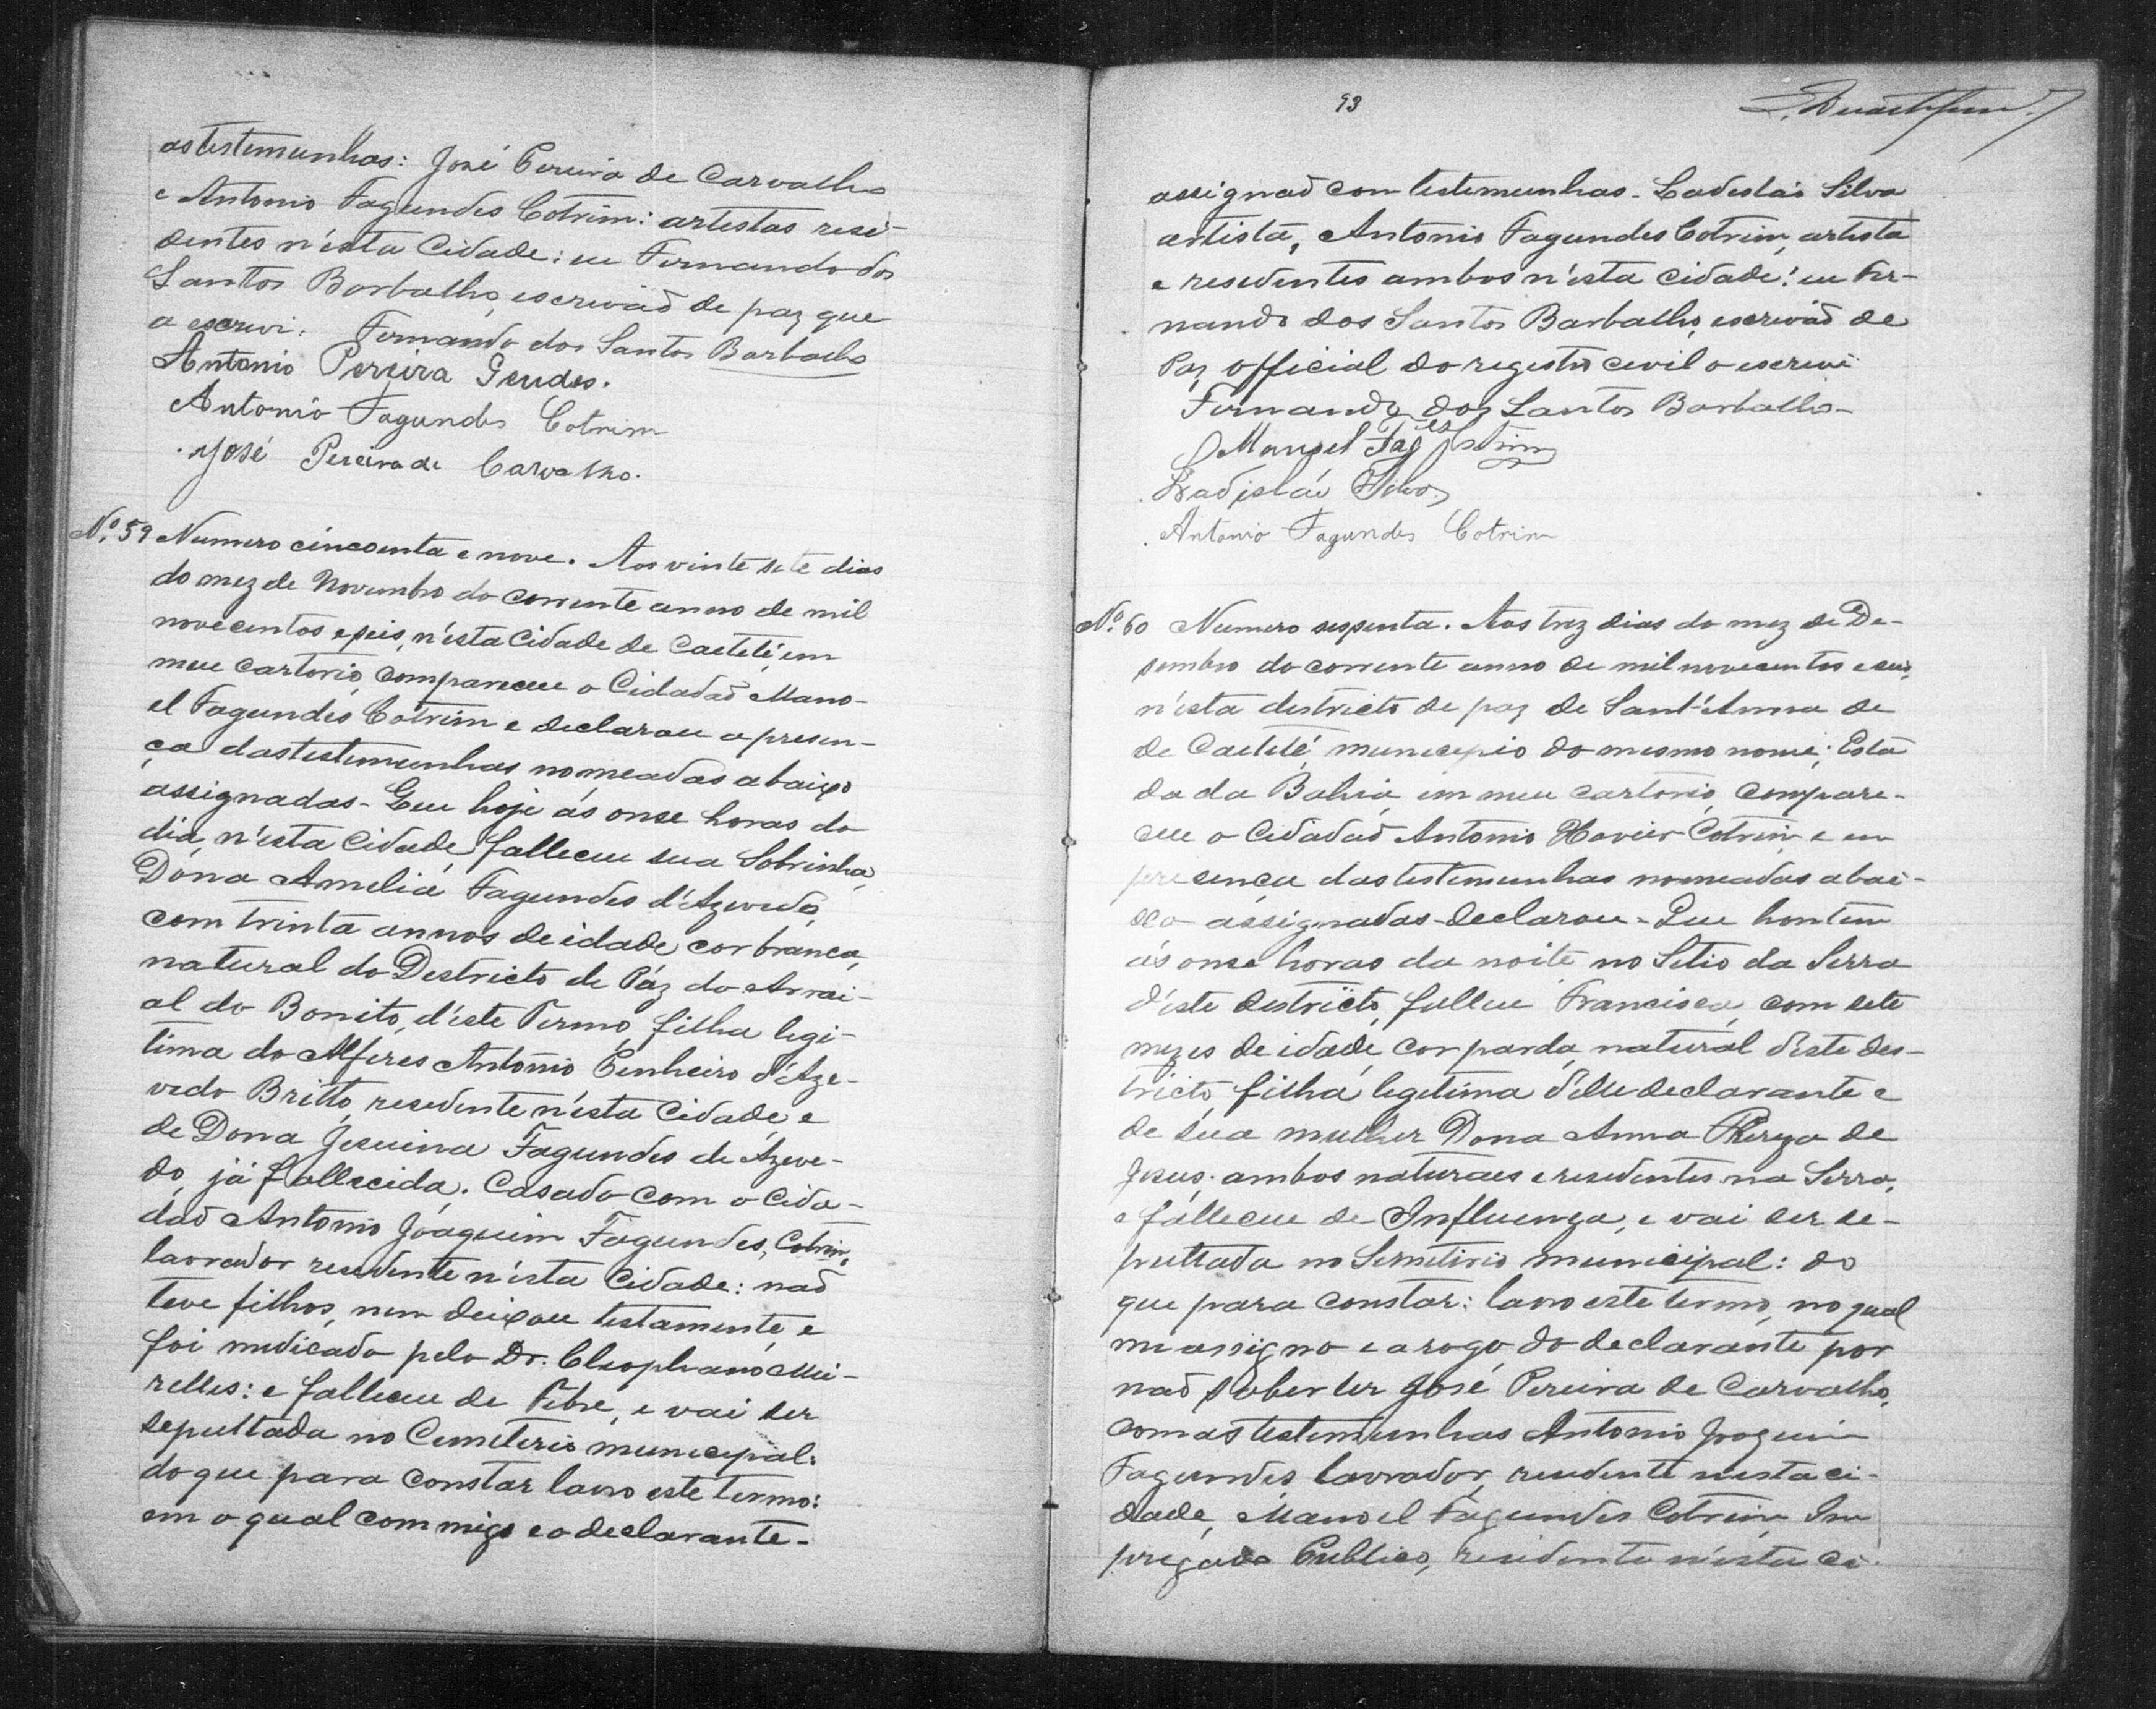 as testemunhas: José Pereira de Carvalho
e Antonio Fagundes Cotrim: artestas resi-
dentes n'esta Cidade: eu Fernando dos
Santos Barbalho, escrivaõ de paz que
a escrevi. Fernando dos Santos Barbalho
Antonio Pereira
Antonio Fagundes Cotrim
José Pereira de Carvalho.
Nº 59 Numero cincoenta e nove. Aos vinte sete dias
do mez de Novembro do corrente anno de mil
novecentos e seis, n'esta Cidade de Caeteté, em
meu cartorio, compareceu o Cidadaõ Mano-
el Fagundes Cotrim e declarou a presen-
ça das testemunhas nomeadas abaixo
assignadas - Que hoje ás onse horas do
dia, n'esta Cidade, falleceu sua Sobrinha,
Dona Amelia Fagundes d'Azevedo,
com trinta annos de idade, cor branca,
natural do Destricto de Páz do Arrai-
al do Bonito, d'este Termo, filha legi-
tima do Alferes Antonio Penheiro d'Aze-
vedo Britto, resedente n'esta Cidade, e
de Dona Jesuina Fagundes de Azeve-
do, já fallecida. Casado com o Cida-
daõ Antonio Joaquim Fagundes, Cotrim,
lavrador resedente n'esta Cidade: naõ
teve filhos, nem deixou testamento, e
foi medicado pelo Dr. Cleophano Mei-
relles: e falleceu de Febre, e vai ser
sepultada no Cemeterio municipal:
do que para constar lavro este termo:
em o qual commigo e o declarante -
93
assignaõ com testemunhas - Ladesláo Silva
artista, Antonio Fagundes Cotrim, artista
e resedentes ambos n'esta cidade: eu Fer-
nando dos Santos Barbalho, escrivaõ de
Paz official do registro cevil o escrevi
Fernando dos Santos Barbalho -
Manoel Fag^es Cotrim
Ladisláu Silva
Antonio Fagundes Cotrim
Nº 60 Numero sessenta. Aos trez dias do mez de De-
sembro do corrente anno de mil novecentos e seis,
n'esta destricto de paz de Sant'Anna de
de Caeteté, municipio do mesmo nome; Esta
do da Bahia, em meu cartorio, compare-
ceu o Cidadaõ Antonio Xavier Cotrim e em
presença das testemunhas nomeadas abai-
xo assignadas - declarou - Que hontem
ás onse horas da noite no Sitio da Serra
d'este destricto, falleu Francisca, com sete
mezes de idade, cor parda, natural d'este des-
tricto, filha legitima d'elle declarante e
de sua mulher Dona Anna Thereza de
Jesus: ambos naturaes e resedentes na Serra,
e falleceu de Influenza, e vai ser se-
pultada no Semiterio municipal: do
que para constar: lavro este termo, no qual
me assigno e a rogo do declarante por
naõ saber ler José Pereira de Carvalho,
com as testemunhas Antonio Joaquim
Fagundes, lavrador, resedente nesta ci-
dade, Manoel Fagundes Cotrim, Im
pregado Publico, resedente n'esta ci-